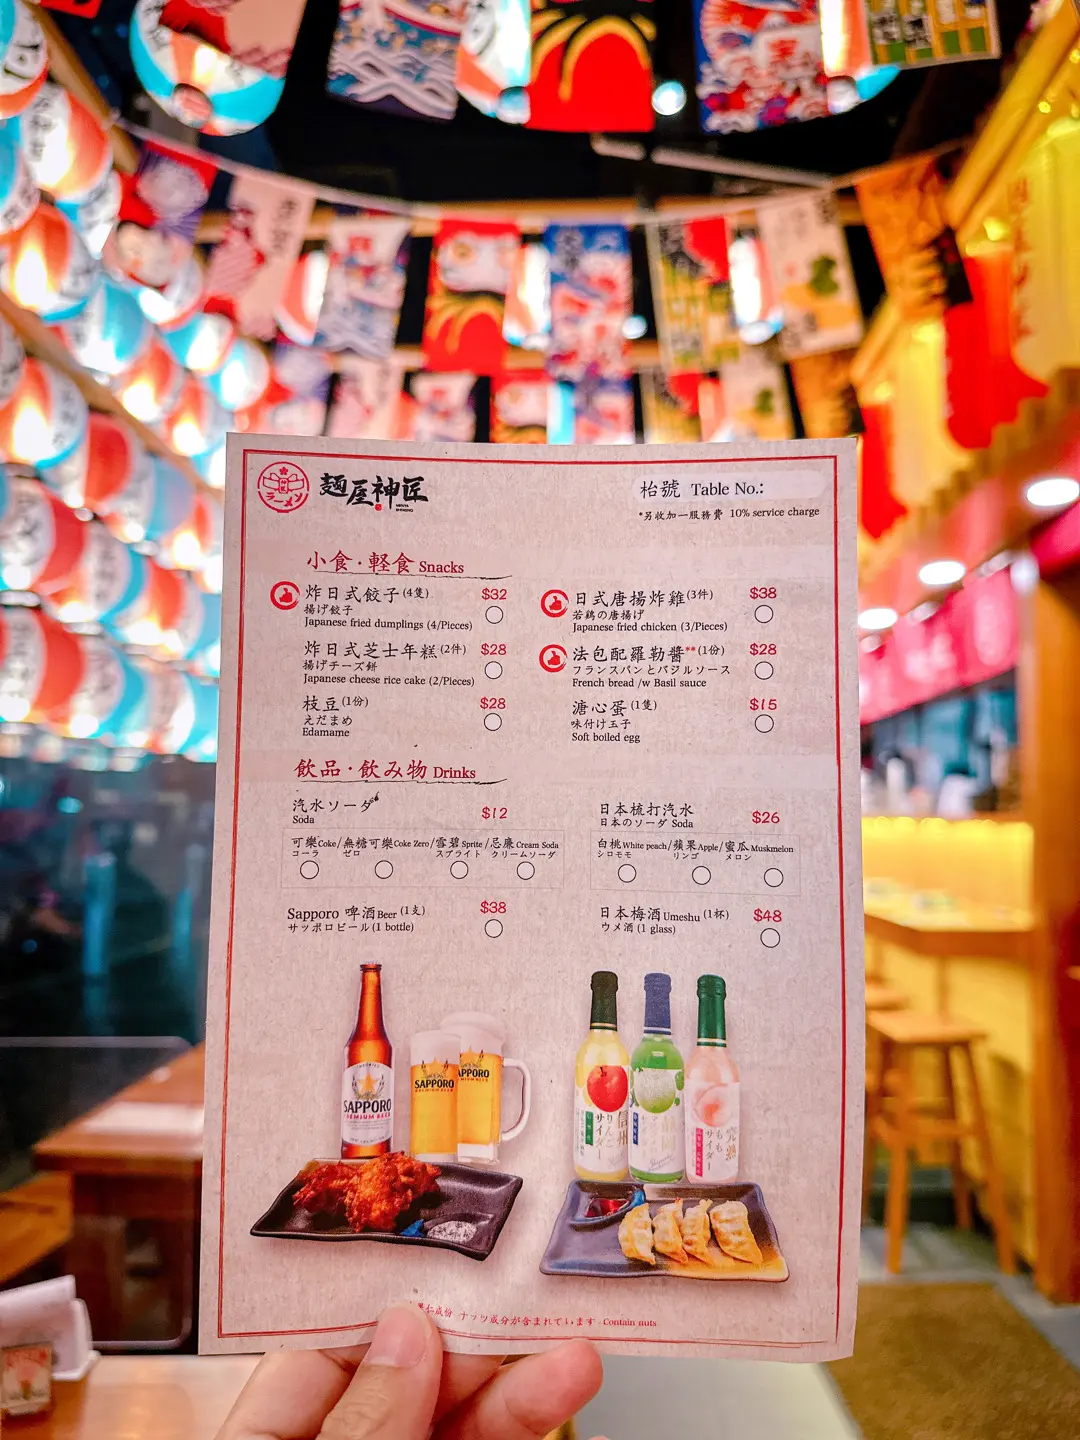 ラーメン
麺屋神匠
MENYA
SHINSHO
枱號 Table No.:
*另收加一服務費 10% service charge
小食·軽食 Snacks
炸日式餃子(4隻) $32
揚げ餃子
Japanese fried dumplings (4/Pieces)
日式唐揚炸雞(3件) $38
若鶏の唐揚げ
Japanese fried chicken (3/Pieces)
炸日式芝士年糕(2件) $28
揚げチーズ餅
Japanese cheese rice cake (2/Pieces)
法包配羅勒醬**(1份) $28
フランスパンとバジルソース
French bread /w Basil sauce
枝豆(1份) $28
えだまめ
Edamame
溏心蛋(1隻) $15
味付け玉子
Soft boiled egg
飲品·飲み物 Drinks
汽水ソーダ $12
Soda
可樂Coke/無糖可樂Coke Zero/雪碧Sprite/忌廉Cream Soda
コーラ ゼロ スプライト クリームソーダ
日本梳打汽水 $26
日本のソーダ Soda
白桃White peach/蘋果Apple/蜜瓜Muskmelon
シロモモ リンゴ メロン
Sapporo 啤酒Beer(1支) $38
サッポロビール(1 bottle)
日本梅酒Umeshu(1杯) $48
ウメ酒(1 glass)
SAPPORO
PREMIUM BEER
SAPPORO
SAPPORO
信州
りんご
サイダー
もも
サイダー
果仁成份 ナッツ成分が含まれています Contain nuts